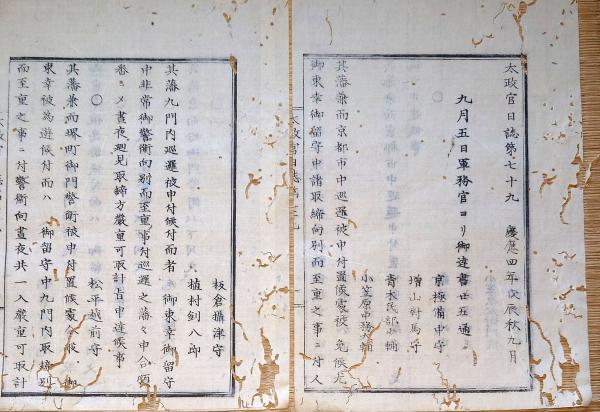 太政官日誌第七十九　慶應四年戊辰秋九月
九月五日軍務官ヨリ御達書廿五通
〇
京極備中守
増山對馬守
青木民部少輔
小笠原中務大輔
其藩兼而京都市中巡邏被申付置候處被免候尤
御東幸御留守中諸取締向別而至重之事ニ付人
太政官日誌第
板倉攝津守
植村釗八郎
其藩九門内巡邏被申付候付而者御東幸御留守
中非常御警衛向別而至重事付巡邏之藩々申合順
番ニメ晝夜廻見取締方嚴重可取計旨申達候事
〇
松平越前守
其藩兼而堺町御門警衛被申付置候處今般御
東幸被為遊候付而ハ御留守中九門内取締別
而至重之事ニ付警衛向晝夜共一入嚴重可取計